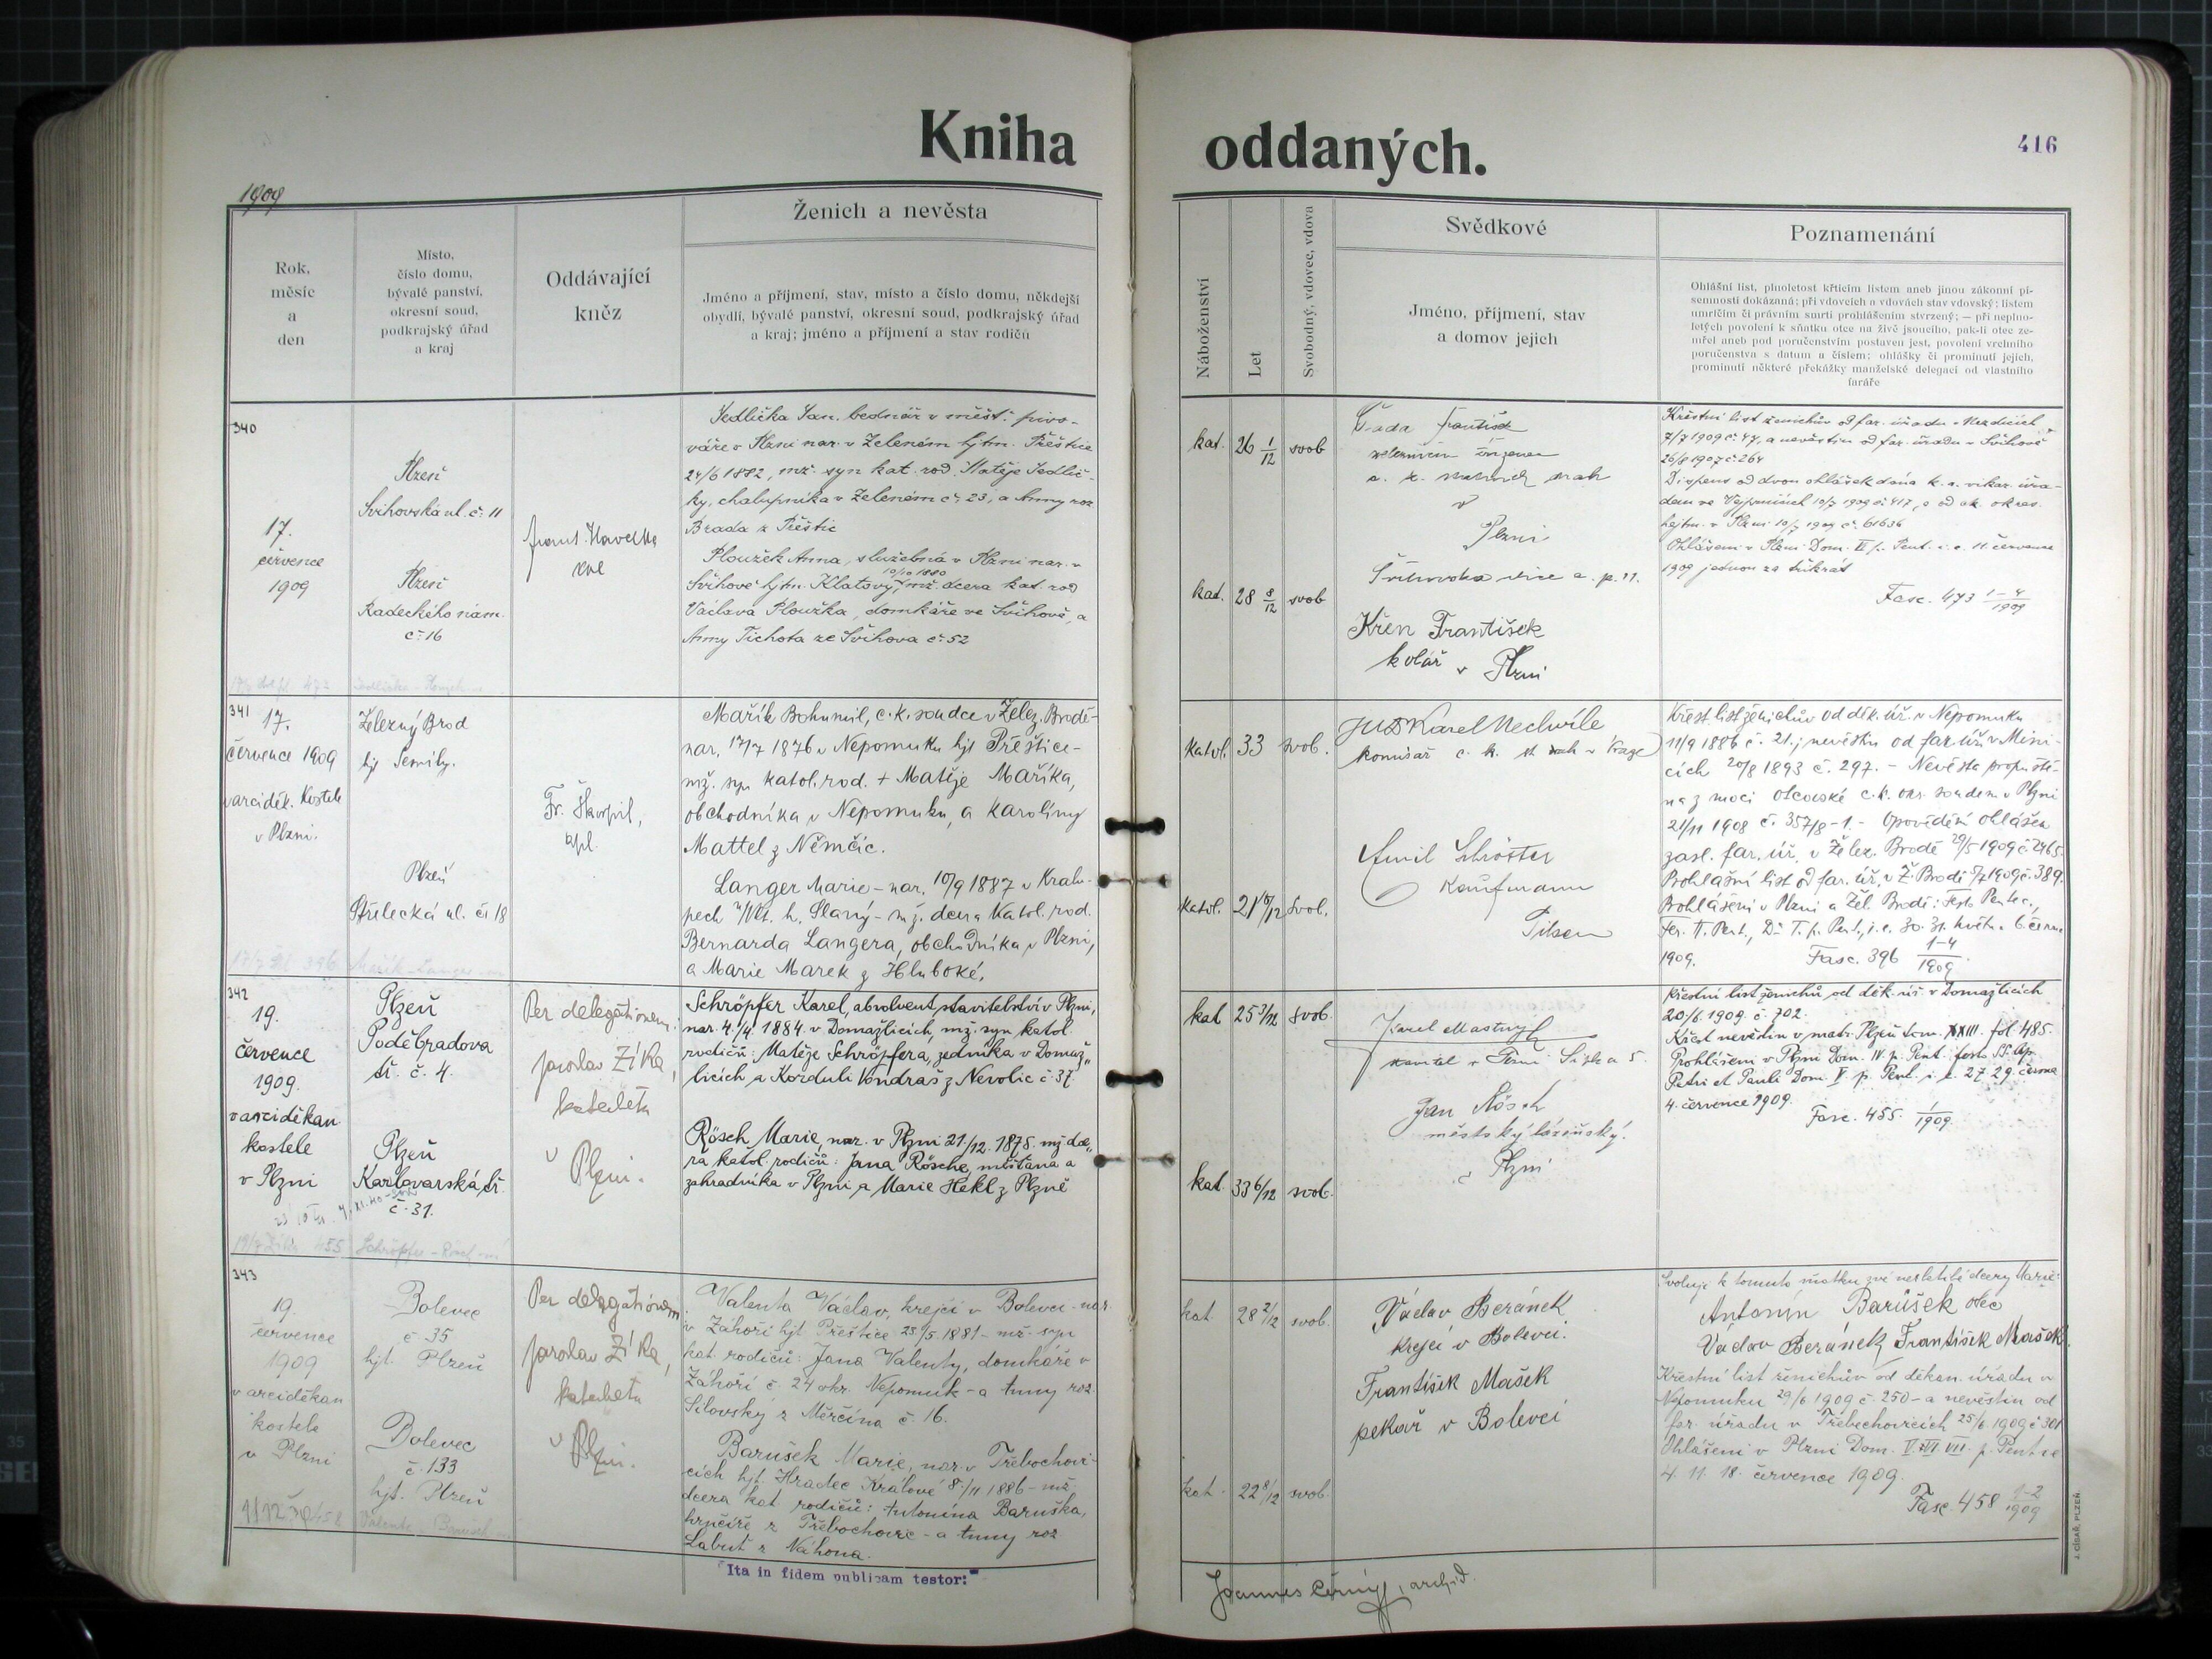 Kniha oddaných.
416
1909
Rok,
měsíc
a
den
Místo,
číslo domu,
bývalé panství,
okresní soud,
podkrajský úřad
a kraj
Oddávající
kněz
Ženich a nevěsta
Jméno a příjmení, stav, místo a číslo domu, někdejší
obydlí, bývalé panství, okresní soud, podkrajský úřad
a kraj; jméno a příjmení a stav rodičů
Náboženství
Let
Svobodný, vdovec, vdova
Svědkové
Jméno, příjmení, stav
a domov jejich
Poznamenání
Ohlášní list, plnoletost křticím listem aneb jinou zákonní pí-
semností dokázaná; při vdovcích a vdovách stav vdovský; listem
úmrlčím či právním smrti prohlášením stvrzený; — při neplno-
letých povolení k sňatku otce na živě jsoucího, pak-li otec ze-
mřel aneb pod poručenstvím postaven jest, povolení vrchního
poručenstva s datum a číslem; ohlášky či prominutí jejich,
prominutí některé překážky manželské delegací od vlastního
faráře
340
17.
července
1909
Plzeň
Švihovská ul. č. 11
Plzeň
Radeckého nám.
č. 16
Frant. Havelka
Jedlička Jan, bednář v měšť. pivo-
váře v Plzni nar. v Zeleném hjtm. Přeštice
24/6 1882, mž. syn kat. rod. Matěje Jedlič-
ky, chalupníka v Zeleném č. 23, a Anny roz
Brada z Přeštic
Plouzek Anna, služebná v Plzni nar. v
Švihově hjtm. Klatovy, 10/10 1880 mž. dcera kat. rod
Václava Plouzka, domkáře ve Švihově, a
Anny Tichota ze Švihova č. 52
kat. 26 1/12 svob
kat. 28 8/12 svob
Čada František
v
Plzni
Křen František
kolář v Plzni
Křestní list ženichův od far. úřadu v
7/7 1909 č. 47, a nevěstin od far. úřadu v Švihově
26/8 1907 č. 264
Dispens od dvou ohlášek dána k. a. vikar. úřa-
dem ve Vejprnicích 10/7 1909 č. 417, a od ok. okres.
hejtm. v Plzni 10/7 1909 č. 61636
Ohlášeni v Plzni Dom. II p. Pent. i. e. 11. července
1909 jednou za třikrát
Fasc. 473 1-4/1909
341
17.
července 1909
v arciděk. kostele
v Plzni.
Železný Brod
hjt Semily.
Plzeň
Střelecká ul. čs 18
Fr. Škorpil,
kpl.
Mařík Bohumil, c. k. soudce v Želez. Brodě-
nar. 17/7 1876 v Nepomuku hjt Přeštice-
mž. syn katol. rod. + Matěje Maříka,
obchodníka v Nepomuku, a Karolíny
Mattel z Němčic.
Langer Marie – nar. 10/9 1887 v Kralu-
pech n/Vlt. h. Slaný – mž. dcera katol. rod.
Bernarda Langera, obchodníka v Plzni,
a Marie Marek z Hluboké.
katol. 33 svob.
katol. 21 10/12 svob.
JUDr Karel Nechvíle
komisař c. k. v Praze
Emil Schröster
Kaufmann
Pilsen
Křest. list ženichův od děk. úř. v Nepomuku
11/9 1886 č. 21.; nevěstin od far. úř. v Mini-
cích 20/8 1893 č. 297. – Nevěsta propuště-
na z moci otcovské c. k. okr. soudem v Plzni
21/11 1908 č. 357/8-1. – Opovědění ohlášek
zasl. far. úř. v Želez. Brodě 29/5 1909 č. 2465.
Prohlášní list od far. úř. v Ž. Brodě 5/7 1909 č. 389.
Prohlášeni v Plzni a Žel. Brodě: Festo Pentec.,
Fer. II. Pent., D. T. p. Pent., i. e. 30. 31. května 6. června
1909. Fasc. 396 1-4/1909
342
19.
července
1909.
v arciděkan.
kostele
v Plzni
Plzeň
Poděbradova
tř. č. 4.
Plzeň
Karlovarská tř.
č. 31.
Per delegationem:
Jaroslav Zíka,
katecheta
v Plzni.
Schröpfer Karel, absolvent stavitelství v Plzni,
nar. 4./4. 1884. v Domažlicích, mž. syn katol.
rodičů: Matěje Schröpfera, zedníka v Domaž-
licích a Korduli Vondraš z Nevolic č. 37.
Rösch Marie, nar. v Plzni 21/12. 1875. mž dce-
ra katol. rodičů: Jana Rösche, měšťana a
zahradníka v Plzni, a Marie Hekl z Plzně
kat 25 3/12 svob.
kat. 33 6/12 svob.
Karel Mastný
Jan Rösch
městský lázeňský.
v Plzni
Křestní list ženichů od děk. úř. v Domažlicích
20./6. 1909. č. 702.
Křest nevěstin v matr. Plzeň tom. XXIII. fol. 485.
Prohlášeni v Plzni Dom. IV. p. Pent. festo SS. Ap.
Petri et Pauli Dom. V. p. Pent. i. e. 27 29. června
4. července 1909.
Fasc. 455. 1/1909.
343
19
července
1909
v arciděkan
kostele
v Plzni
Bolevec
č 35
hjt. Plzeň
Bolevec
č. 133
hjt. Plzeň
Per delegationem
Jaroslav Zíka,
katecheta
v Plzni.
Valenta Václav, krejčí v Bolevci - nar.
v Záhoří hjt Přeštice 25./5. 1881 – mž. syn
kat. rodičů: Jana Valenty, domkáře v
Záhoří č. 24 okr. Nepomuk - a Anny roz.
Silovský z Měrčína č. 16.
Barušek Marie, nar. v Třebechovi-
cích hjt. Hradec Králové 8./11 1886 – mž.
dcera kat rodičů: Antonína Baruška,
hrnčíře z Třebechovic – a Anny roz
Labuť z Náhona.
kat. 28 2/12 svob.
kat. 22 8/12 svob.
Václav Beránek
krejčí v Bolevci.
František Mašek
pekař v Bolevci
Svoluji k tomuto sňatku své nezletilé dcery Marie:
Antonín Barůšek otec
Václav Beránek František Mašek
Křestní list ženichův od děkan. úřadu v
Nepomuku 29/6 1909 č. 250 – a nevěstin od
far. úřadu v Třebechovicích 25/6 1909 č 301
Ohlášeni v Plzni Dom. V. VI. VII. p. Pent. i e
4. 11. 18. července 1909.
Fasc. 458 1-2/1909
"Ita in fidem publicam testor:"
Joannes Černý, archid.
J. CÍSAŘ, PLZEŇ.